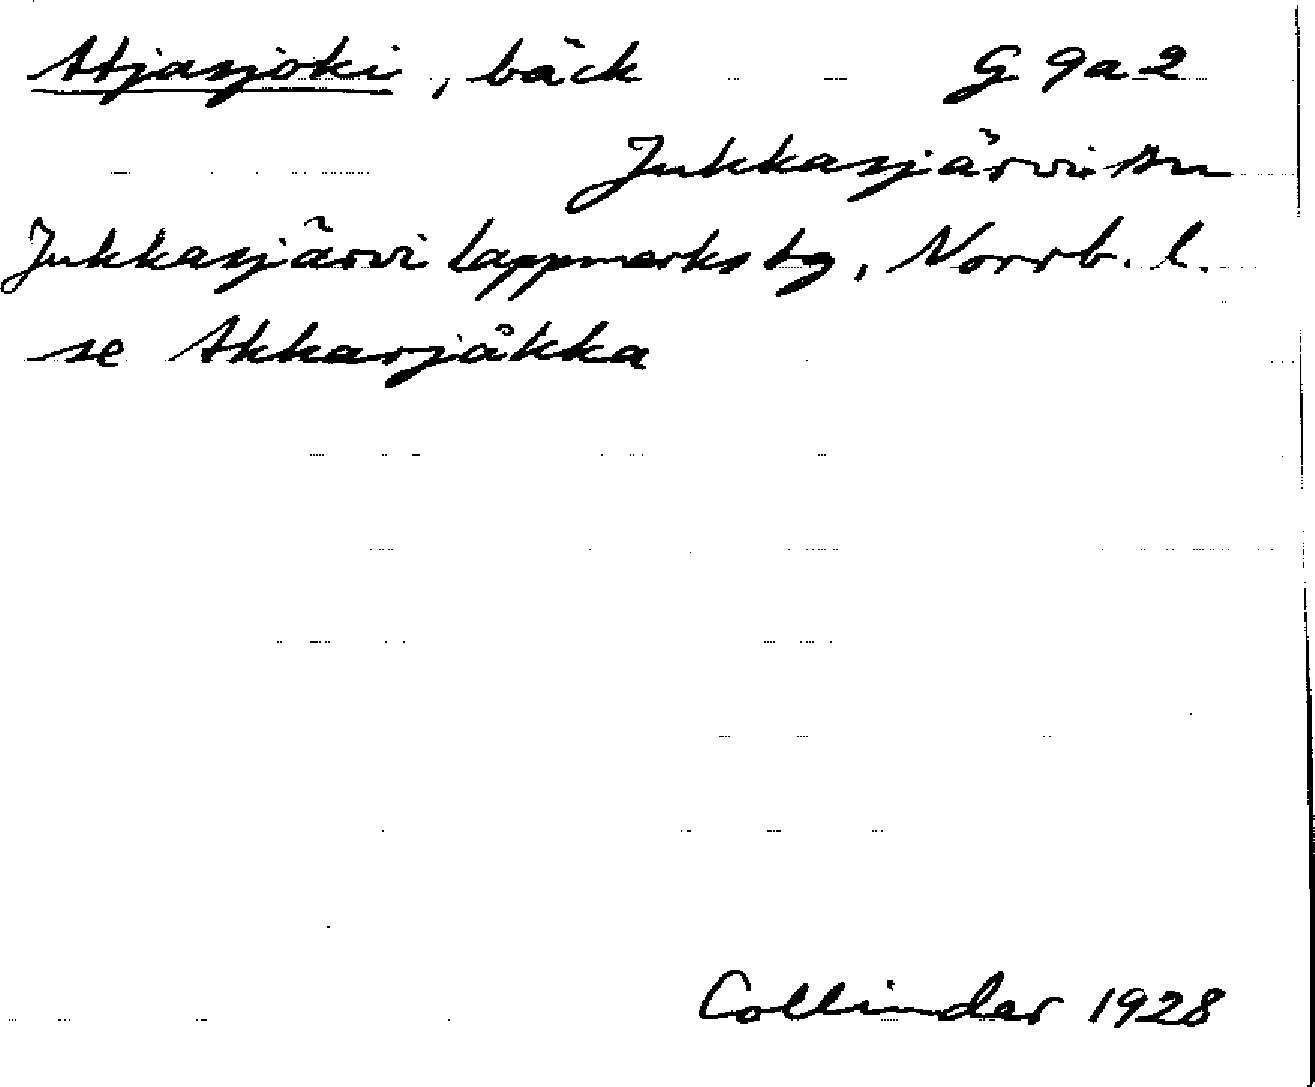 Atjasjoki, bäck G 9a2
Jukkasjärvi sn
Jukkasjärvi lappmarks tg, Norrb. l.
se Akkarjåkka
Collinder 1928